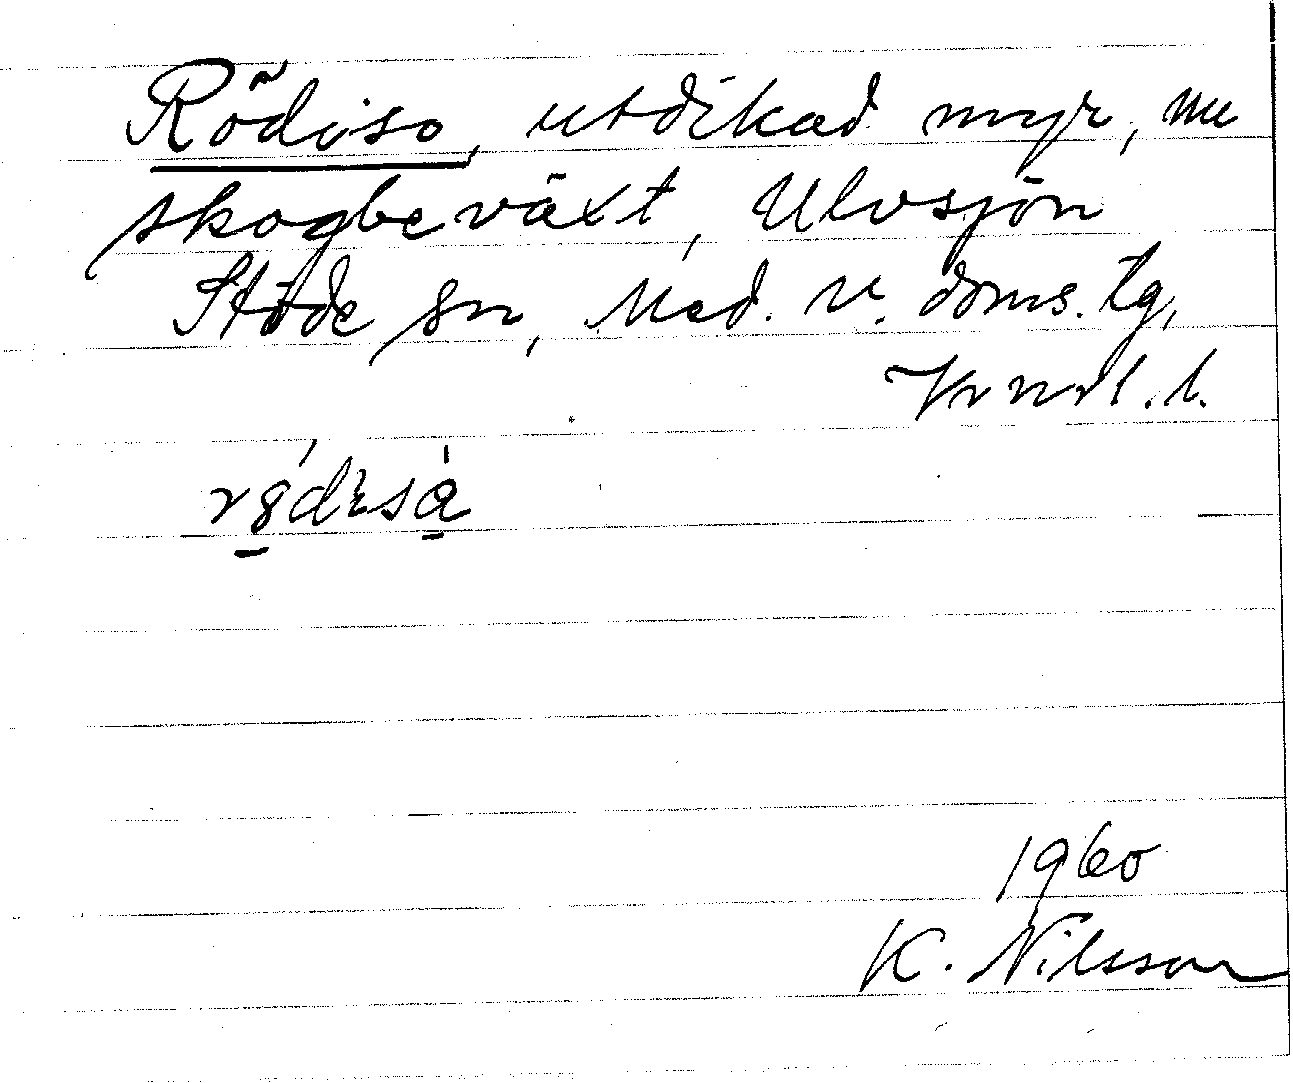 Rödiso, utdikad myr, nu
skogbeväxt, Ulvsjön
Stöde sn, Med. v. doms. tg,
Vrnrl. l.
1960
K. Nilsson